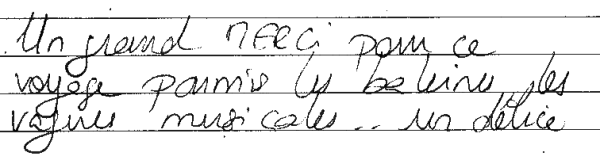 Un grand MERCi pour ce
voyage parmis les baleines, les
vagues musicales... un délice